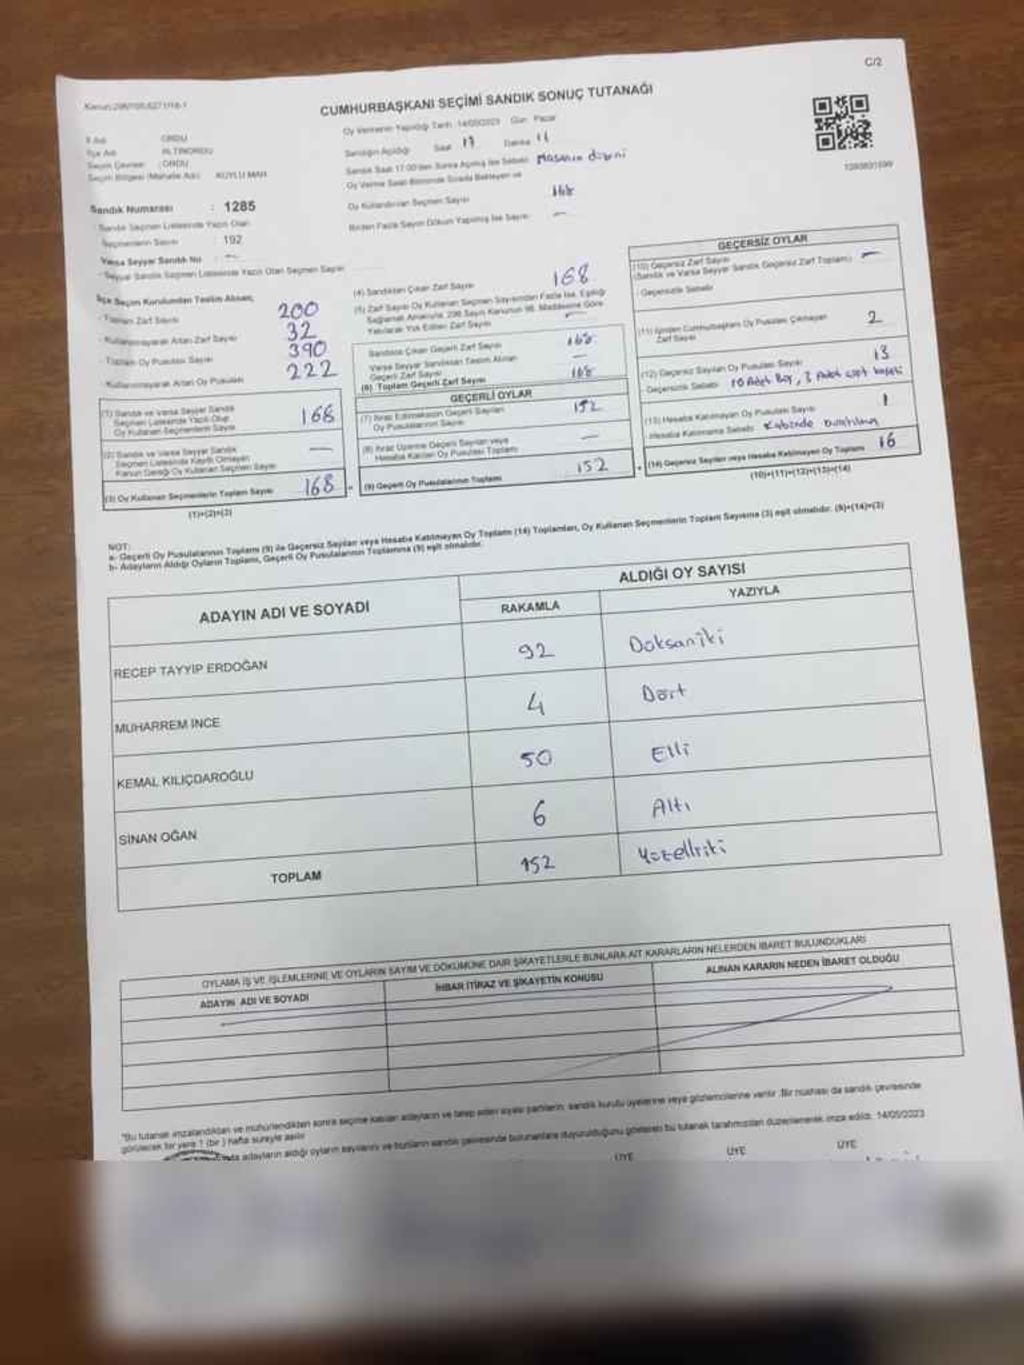 C/2
CUMHURBAŞKANI SEÇİMİ SANDIK SONUÇ TUTANAĞI
Oy Vermenin Yapıldığı Tarih :14/05/2023 Gün: Pazar
İl Adı : ORDU
İlçe Adı : ALTINORDU
Seçim Çevresi : ORDU
Seçim Bölgesi (Mahalle Adı) : KUYLU MAH
Sandığın Açıldığı Saat 17 Dakika 11
Sandık Saat 17:00'den Sonra Açılmış İse Sebebi Masanın düzeni
Oy Verme Saati Bitiminde Sırada Bekleyen ve
Oy Kullandırılan Seçmen Sayısı 168
Birden Fazla Sayım Döküm Yapılmış İse Sayısı —
Sandık Numarası : 1285
Sandık Seçmen Listesinde Yazılı Olan
Seçmenlerin Sayısı : 192
Varsa Seyyar Sandık No : —
Seyyar Sandık Seçmen Listesinde Yazılı Olan Seçmen Sayısı
İlçe Seçim Kurulundan Teslim Alınan;
- Toplam Zarf Sayısı 200
- Kullanılmayarak Artan Zarf Sayısı 32
- Toplam Oy Pusulası Sayısı 390
- Kullanılmayarak Artan Oy Pusulası 222
(1) Sandık ve Varsa Seyyar Sandık
Seçmen Listesinde Yazılı Olup
Oy Kullanan Seçmenlerin Sayısı 168
(2) Sandık ve Varsa Seyyar Sandık
Seçmen Listesinde Kayıtlı Olmayan
Kanun Gereği Oy Kullanan Seçmen Sayısı —
(3) Oy Kullanan Seçmenlerin Toplam Sayısı 168
(1)+(2)=(3)
(4) Sandıktan Çıkan Zarf Sayısı 168
(5) Zarf Sayısı Oy Kullanan Seçmen Sayısından Fazla İse, Eşitliği
Sağlamak Amacıyla, 298 Sayılı Kanunun 98. Maddesine Göre
Yakılarak Yok Edilen Zarf Sayısı —
Sandıkta Çıkan Geçerli Zarf Sayısı 168
Varsa Seyyar Sandıktan Teslim Alınan
Geçerli Zarf Sayısı —
(6) Toplam Geçerli Zarf Sayısı 168
GEÇERLİ OYLAR
(7) İtiraz Edilmeksizin Geçerli Sayılan
Oy Pusulalarının Sayısı 152
(8) İtiraz Üzerine Geçerli Sayılan veya
Hesaba Katılan Oy Pusulası Toplamı —
(9) Geçerli Oy Pusulalarının Toplamı 152
GEÇERSİZ OYLAR
(10) Geçersiz Zarf Sayısı
(Sandık ve Varsa Seyyar Sandık Geçersiz Zarf Toplamı) —
- Geçersizlik Sebebi
(11) İçinden Cumhurbaşkanı Oy Pusulası Çıkmayan
Zarf Sayısı 2
(12) Geçersiz Sayılan Oy Pusulası Sayısı 13
- Geçersizlik Sebebi 10 Adet Boş, 3 Adet
(13) Hesaba Katılmayan Oy Pusulası Sayısı 1
Hesaba Katılmama Sebebi Kabinde
(14) Geçersiz Sayılan veya Hesaba Katılmayan Oy Toplamı 16
(10)+(11)+(12)+(13)=(14)
NOT:
a- Geçerli Oy Pusulalarının Toplamı (9) ile Geçersiz Sayılan veya Hesaba Katılmayan Oy Toplamı (14) Toplamları, Oy Kullanan Seçmenlerin Toplam Sayısına (3) eşit olmalıdır. (9)+(14)=(3)
b- Adayların Aldığı Oyların Toplamı, Geçerli Oy Pusulalarının Toplamına (9) eşit olmalıdır.
ADAYIN ADI VE SOYADI
ALDIĞI OY SAYISI
RAKAMLA
YAZIYLA
RECEP TAYYIP ERDOĞAN 92 Doksaniki
MUHARREM İNCE 4 Dört
KEMAL KILIÇDAROĞLU 50 Elli
SİNAN OĞAN 6 Altı
TOPLAM 152 Yüzelliiki
OYLAMA İŞ VE İŞLEMLERİNE VE OYLARIN SAYIM VE DÖKÜMÜNE DAİR ŞİKAYETLERLE BUNLARA AİT KARARLARIN NELERDEN İBARET BULUNDUKLARI
ADAYIN ADI VE SOYADI
İHBAR İTİRAZ VE ŞİKAYETİN KONUSU
ALINAN KARARIN NEDEN İBARET OLDUĞU
"Bu tutanak imzalandıktan ve mühürlendikten sonra seçime katılan adayların ve talep eden siyasi partilerin, sandık kurulu üyelerine veya gözlemcilerine verilir .Bir nüshası da sandık çevresinde
görülecek bir yere 1 (bir ) hafta süreyle asılır.
adayların aldığı oyların sayılarını ve bunların sandık çevresinde bulunanlara duyurulduğunu gösteren bu tutanak tarafımızdan düzenlenerek imza edildi. 14/05/2023
ÜYE ÜYE ÜYE